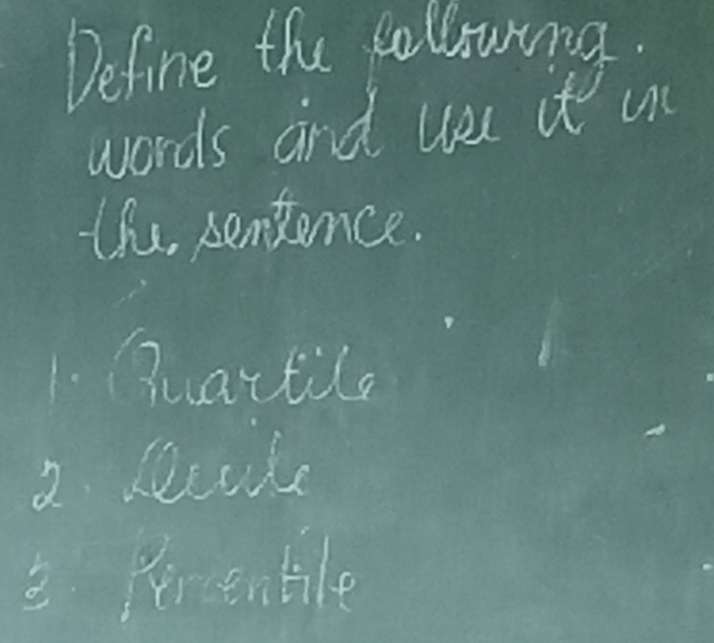 Define the following.
words and use it in
the sentence.
1. Quartile
2. Decile
3. Percentile